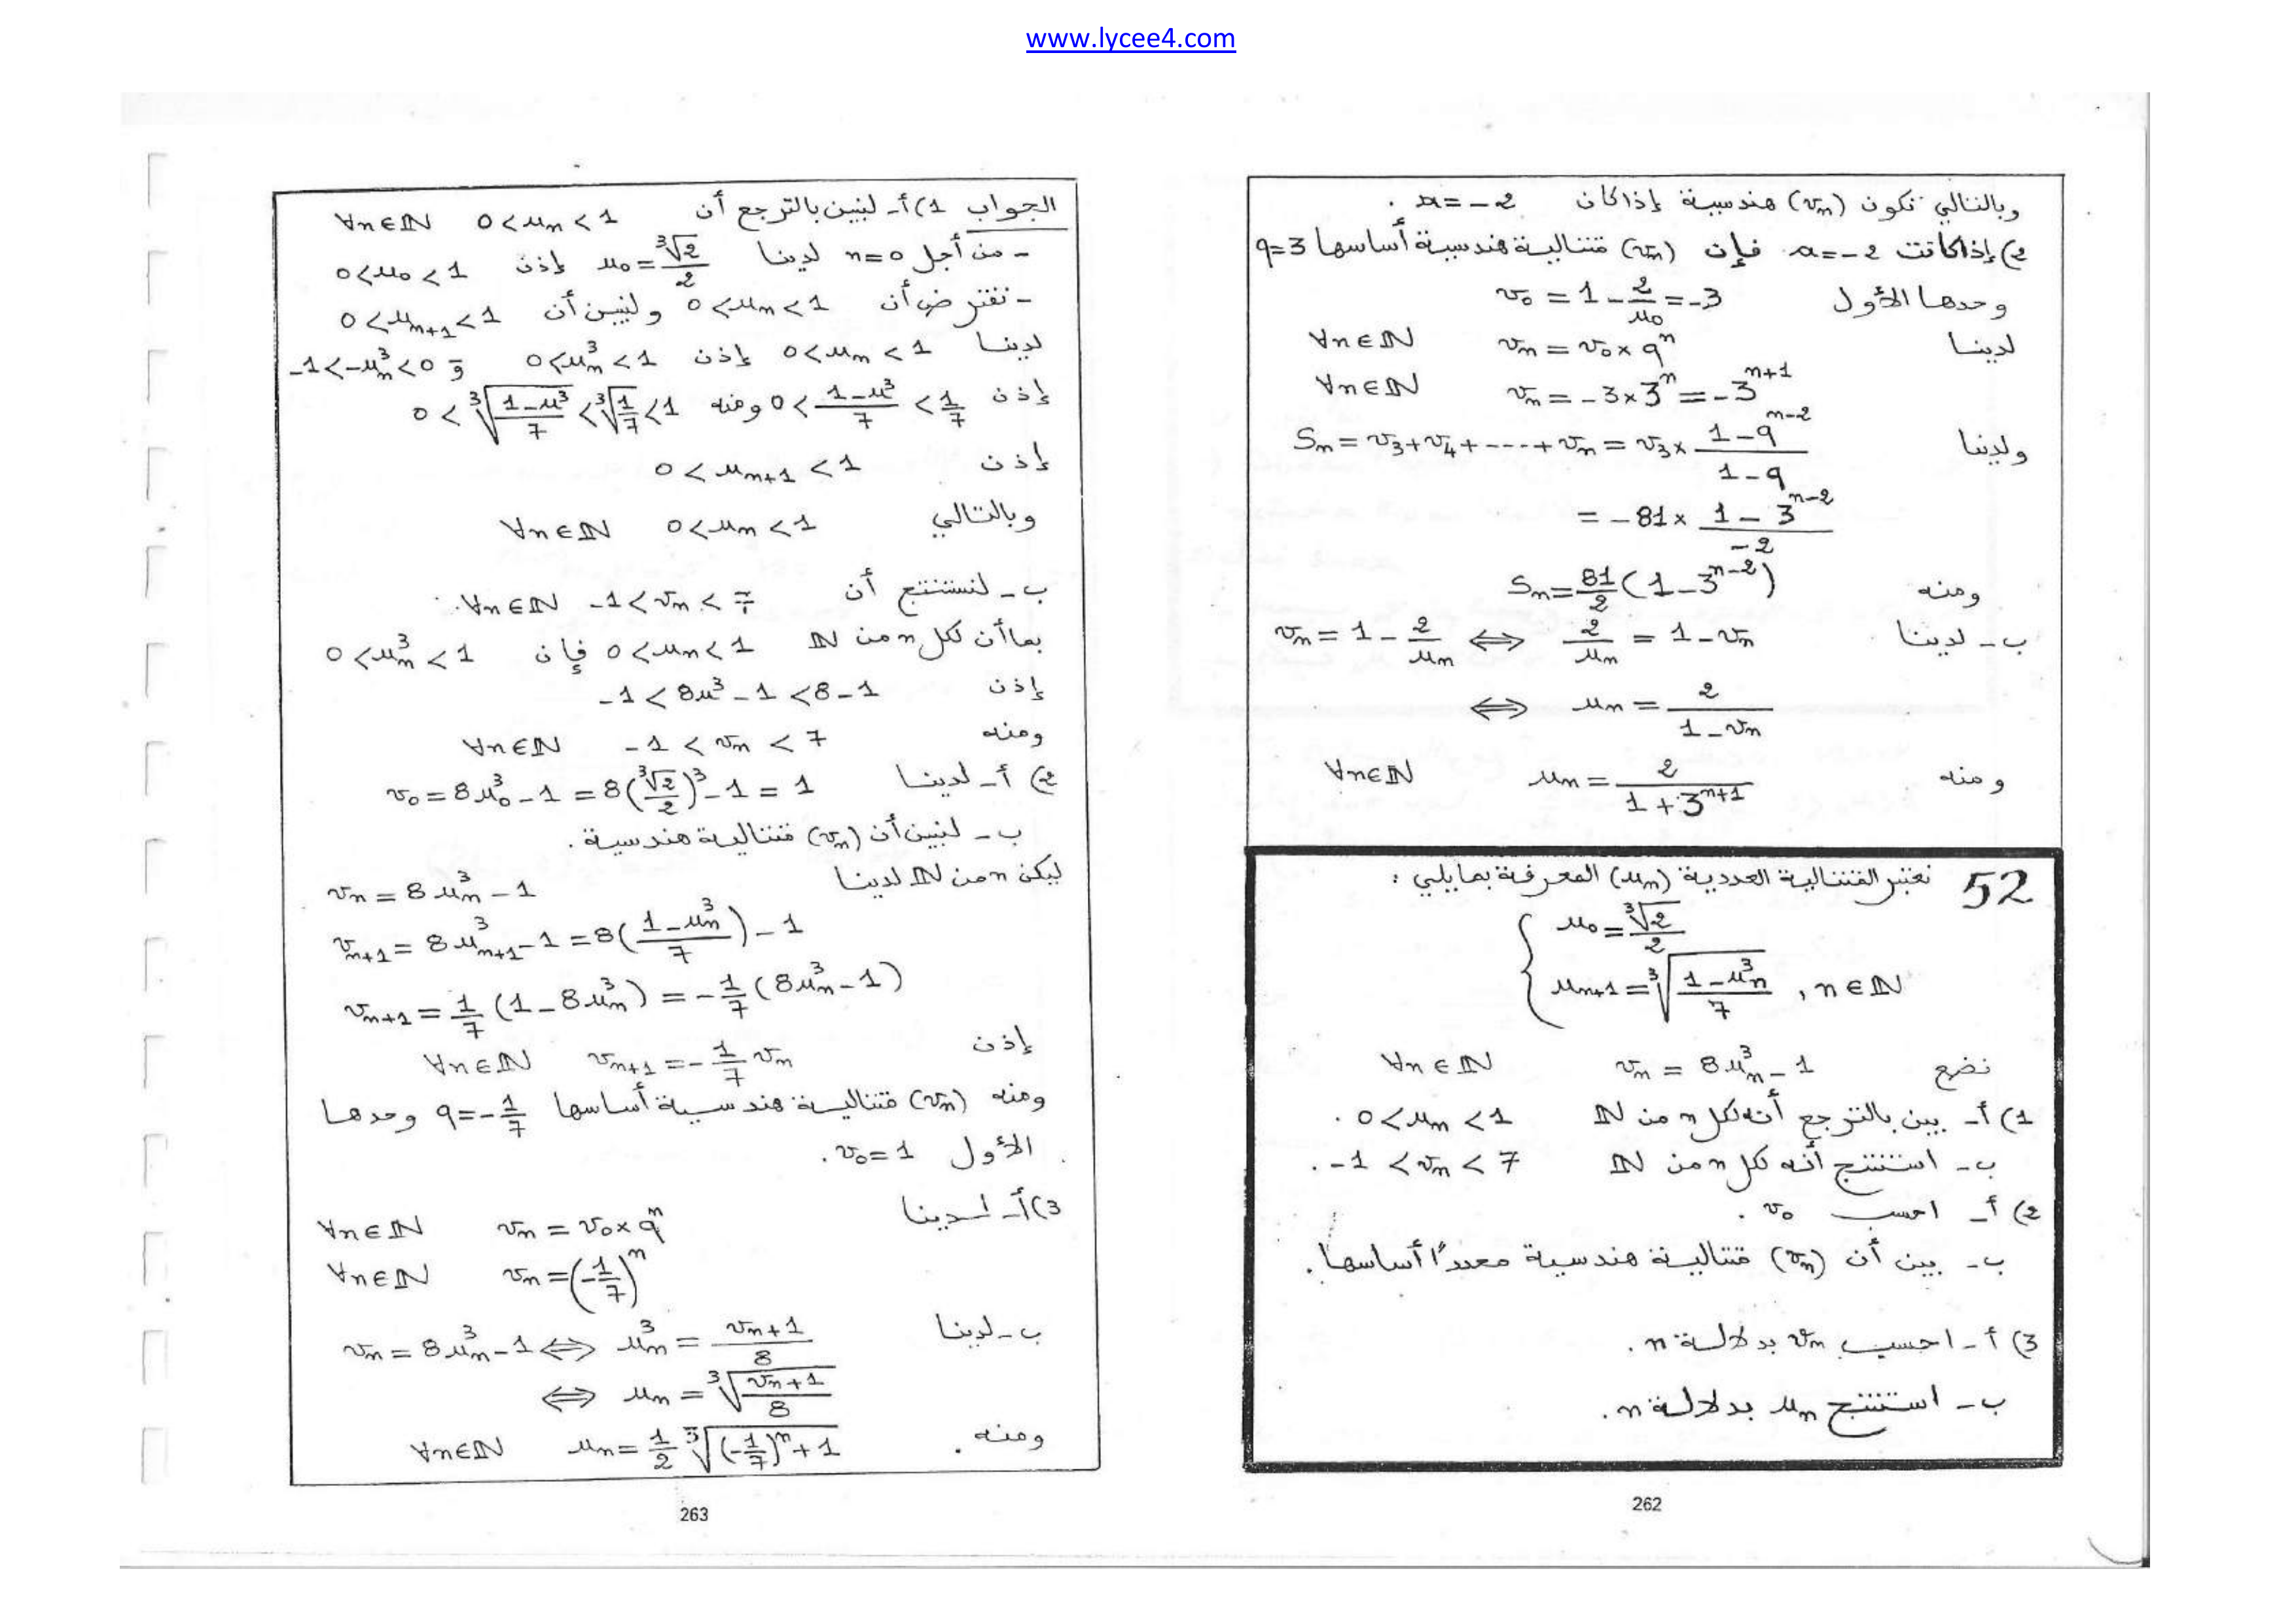 www.lycee4.com
وبالتالي تكون (vn) هندسية إذا كان a = -2 .
2) إذا كانت a = -2 فإن (vn) متتالية هندسية أساسها q=3
وحدها الأول v₀ = 1 - 2/u₀ = -3
لدينا vn = v₀ × qⁿ ∀n∈ℕ
vn = -3×3ⁿ = -3ⁿ⁺¹ ∀n∈ℕ
ولدينا Sn = v₃+v₄+----+vn = v₃ × (1-qⁿ⁻²)/(1-q)
= -81 × (1-3ⁿ⁻²)/(-2)
ومنه Sn = 81/2 (1-3ⁿ⁻²)
ب- لدينا vn = 1 - 2/un ⟺ 2/un = 1 - vn
⟺ un = 2/(1-vn)
ومنه un = 2/(1+3ⁿ⁺¹) ∀n∈ℕ
52 نعتبر المتتالية العددية (un) المعرفة بمايلي :
u₀ = ∛2/2
un+1 = ∛((1-un³)/7) , n∈ℕ
نضع vn = 8un³ - 1 ∀n∈ℕ
1) أ- بين بالترجع أنه لكل n من ℕ 0 < un < 1 .
ب- استنتج أنه لكل n من ℕ -1 < vn < 7 .
2) أ- احسب v₀ .
ب- بين أن (vn) متتالية هندسية محددًا أساسها .
3) أ- احسب vn بدلالة n .
ب- استنتج un بدلالة n .
262
الجواب 1) أ- لنبين بالترجع أن 0 < un < 1 ∀n∈ℕ
- من أجل n=0 لدينا u₀ = ∛2/2 إذن 0 < u₀ < 1
- نفترض أن 0 < un < 1 ولنبين أن 0 < un+1 < 1
لدينا 0 < un < 1 إذن 0 < un³ < 1 و -1 < -un³ < 0
إذن 0 < (1-u³)/7 < 1/7 ومنه 0 < ∛((1-u³)/7) < ∛(1/7) < 1
إذن 0 < un+1 < 1
وبالتالي 0 < un < 1 ∀n∈ℕ
ب- لنستنتج أن -1 < vn < 7 ∀n∈ℕ .
بما أن لكل n من ℕ 0 < un < 1 فإن 0 < un³ < 1
إذن -1 < 8u³ - 1 < 8 - 1
ومنه -1 < vn < 7 ∀n∈ℕ
2) أ- لدينا v₀ = 8u₀³ - 1 = 8(∛2/2)³ - 1 = 1
ب- لنبين أن (vn) متتالية هندسية .
ليكن n من ℕ لدينا vn = 8un³ - 1
vn+1 = 8un+1³ - 1 = 8((1-un³)/7) - 1
vn+1 = 1/7 (1 - 8un³) = -1/7 (8un³ - 1)
إذن vn+1 = -1/7 vn ∀n∈ℕ
ومنه (vn) متتالية هندسية أساسها q = -1/7 وحدها
الأول v₀ = 1 .
3) أ- لدينا vn = v₀ × qⁿ ∀n∈ℕ
vn = (-1/7)ⁿ ∀n∈ℕ
ب- لدينا vn = 8un³ - 1 ⟺ un³ = (vn+1)/8
⟺ un = ∛((vn+1)/8)
ومنه un = 1/2 ∛((-1/7)ⁿ + 1) ∀n∈ℕ .
263